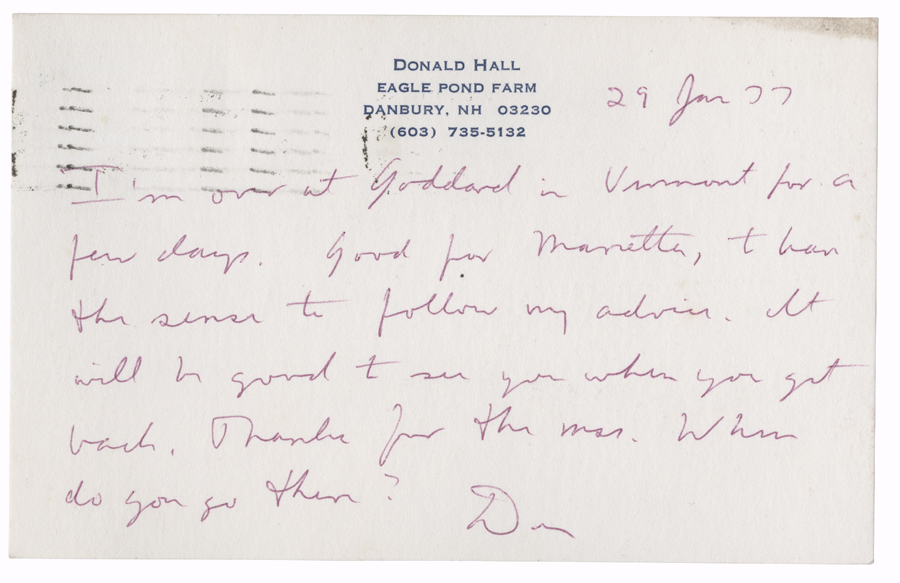 DONALD HALL
EAGLE POND FARM
DANBURY, NH 03230
(603) 735-5132
29 Jan 77
I'm over at Goddard in Vermont for a
few days. Good for Marietta, to have
the sense to follow my advice. It
will be good to see you when you get
back. Thanks for the mss. When
do you go there?
Don